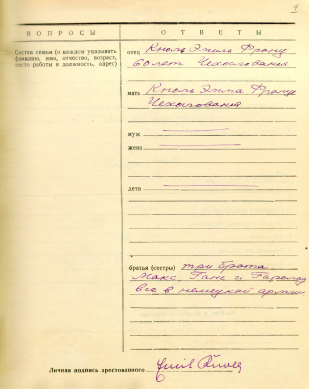 ВОПРОСЫ
ОТВЕТЫ
Состав семьи (о каждом указывать
фамилию, имя, отчество, возраст,
место работы и должность, адрес)
отец Кноль Эмиль Франц
60 лет Чехословакия
мать Кноль Эмма Франц
Чехословакия
муж
жена
дети
братья (сестры) три брата
Макс Ганс и Гаральд
все в немецкой армии
Личная подпись арестованного Emil